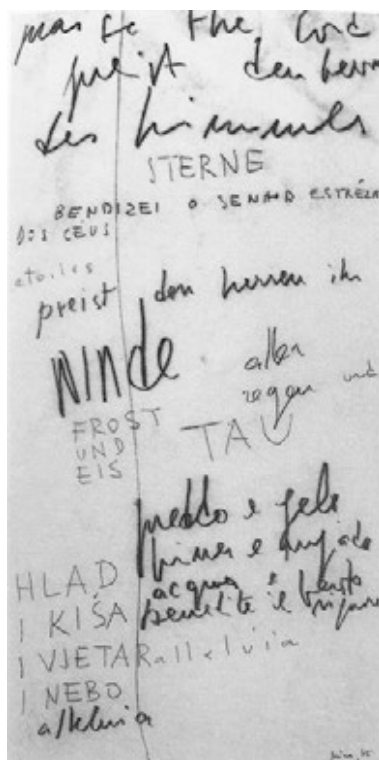 praise the lord
preist den herrn
des himmels
STERNE
BENDIZEI O SENHO ESTRÉLA
DOS CÉUS
etoiles
preist den herren ihr
WINDE
aller
regen und
FROST
UND
EIS
TAU
freddo e gelo
e
HLAD
I KIŠA
acqua e vento
benedite il
I VJETAR alleluia
I NEBO
alleluia